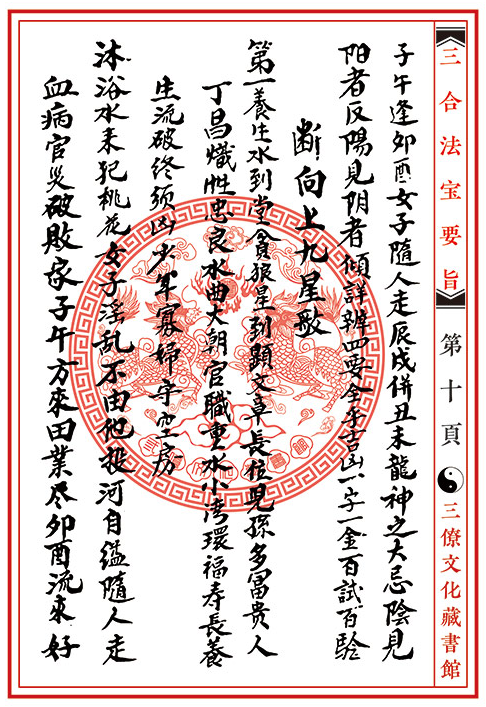 三合法宝要旨
第十頁
三僚文化藏書館
子午逢卯酉女子隨人走辰戌併丑未龍神之大忌陰見
阳者反陽見阴者傾詳辨四要全乎吉凶一字一金百試百験
断向上九星歌
第一養生水到堂貪狼星到顕文章長位児孫多富贵人
丁昌熾性忠良水曲大朝官職重水小湾環福寿長養
生流破终须凶少年寡婦守空房
沐浴水来犯桃花女子淫乱不由他投河自缢隨人走
血病官災破敗家子午方來田業尽卯酉流來好